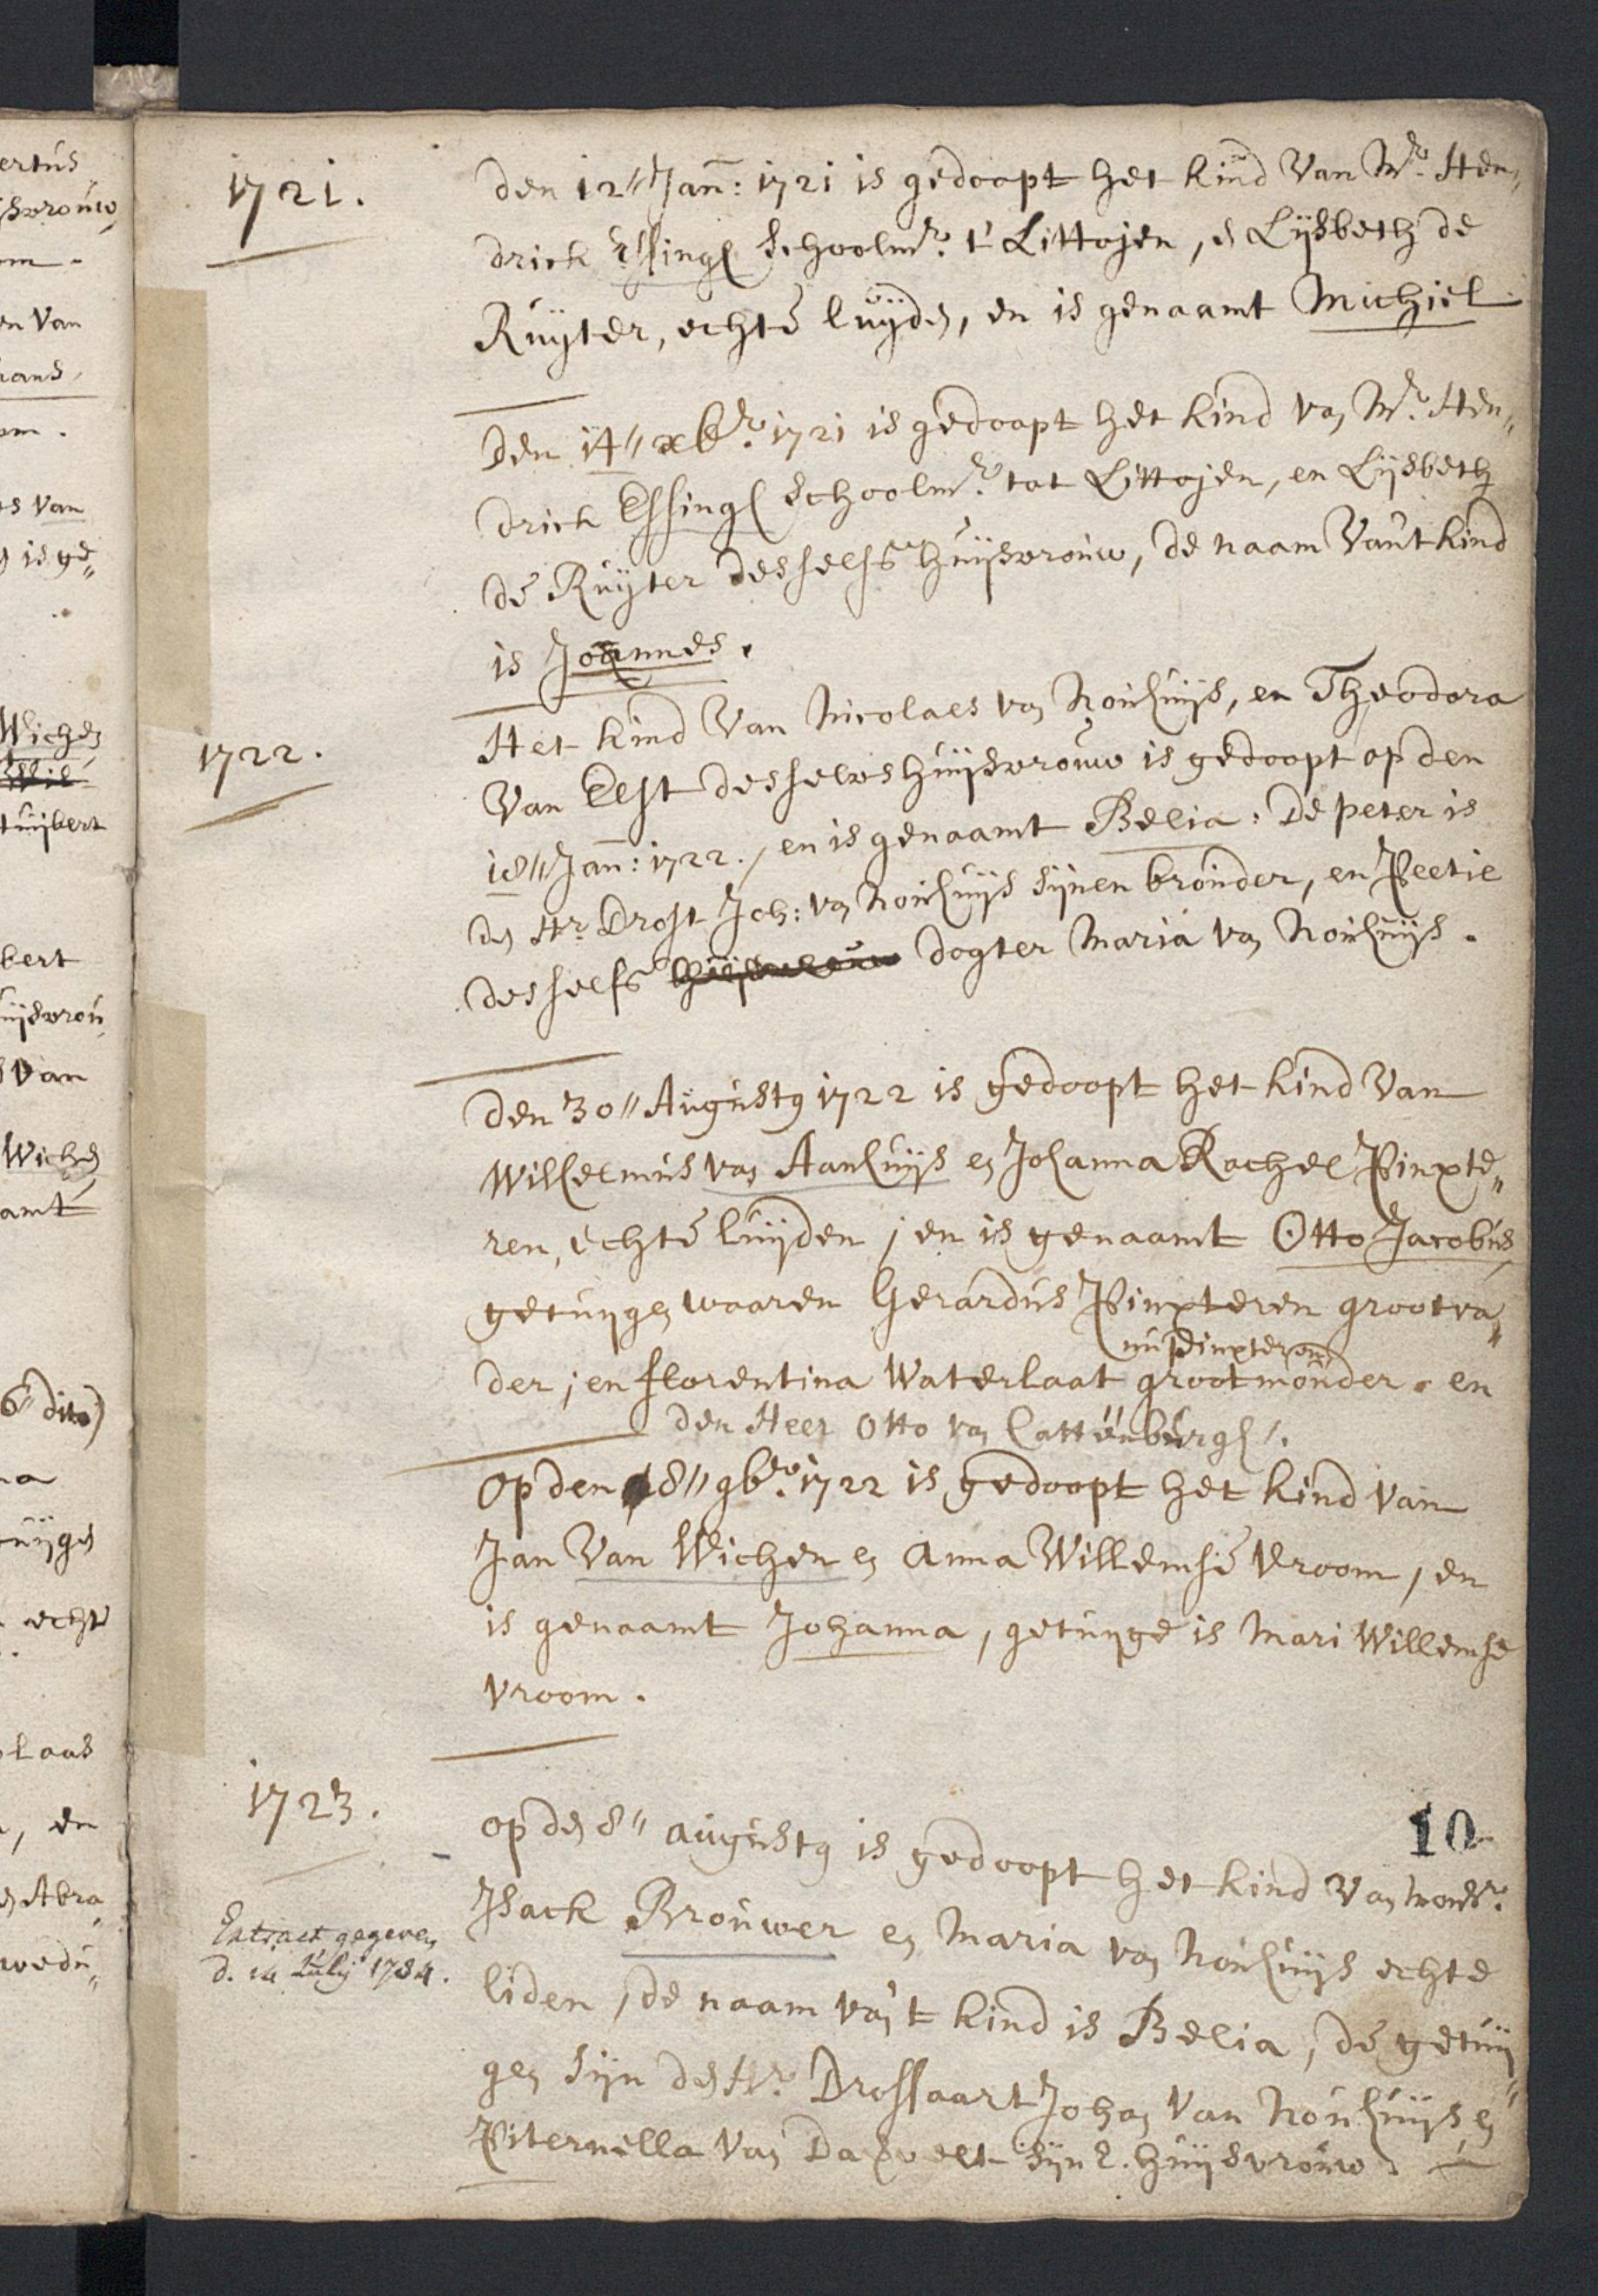 1721.
den 12" Jan: 1721 is gedoopt het kind Van Mr. Hen„
drick Essingh Schoolmr. t' Littojen, en Lijsbeth de
Ruyter, echte luijden, en is genaamt Michiel
den 14" xbr. 1721 is gedoopt het kind van Mr. Hen„
drick Essingh Schoolmr. tot Littojen, en Lijsbeth
de Ruijter desselfs huijsvrouw, de naam Van't kind
is Joannes.
1722.
Het kind Van Nicolaes van Nouhuijs, en Theodora
Van Elst desselvs huijsvrouw is gedoopt op den
18" Jan: 1722., en is genaamt Belia: De peter is
den Hr. Drost Joh: van Nouhuijs sijnen brouder, en Peetie
desselfs huijsvrouw dogter Maria van Nouhuijs.
den 30" Augustus 1722 is gedoopt het kind Van
Wilhelmus van Aanhuijs en Johanna Rachel Pinxte„
ren, echte luijden, en is genaamt Otto Jacobus
getuygen waaren Gerardus Pinxteren grootva„
nu pinxteren
der, en florentina Waterlaat grootmouder. en
den Heer Otto van Cattenburgh.
Op den 8" 9br. 1722 is gedoopt het kind van
Jan Van Wichen en Anna Willemse Vroom, en
is genaamt Johanna, getuyge is Mari Willemse
vroom.
1723.
10
op den 8" augustus is gedoopt het kind van monsr.
Isack Brouwer en Maria van Nouhuijs echte
Extract gegeven
d. 14 July 1784.
liden, de naam van't kind is Belia, de getuij„
gen sijn den Hr. Drossaart Johan Van Nouhuijs en
Piternella van sijn E. huijsvrouw.